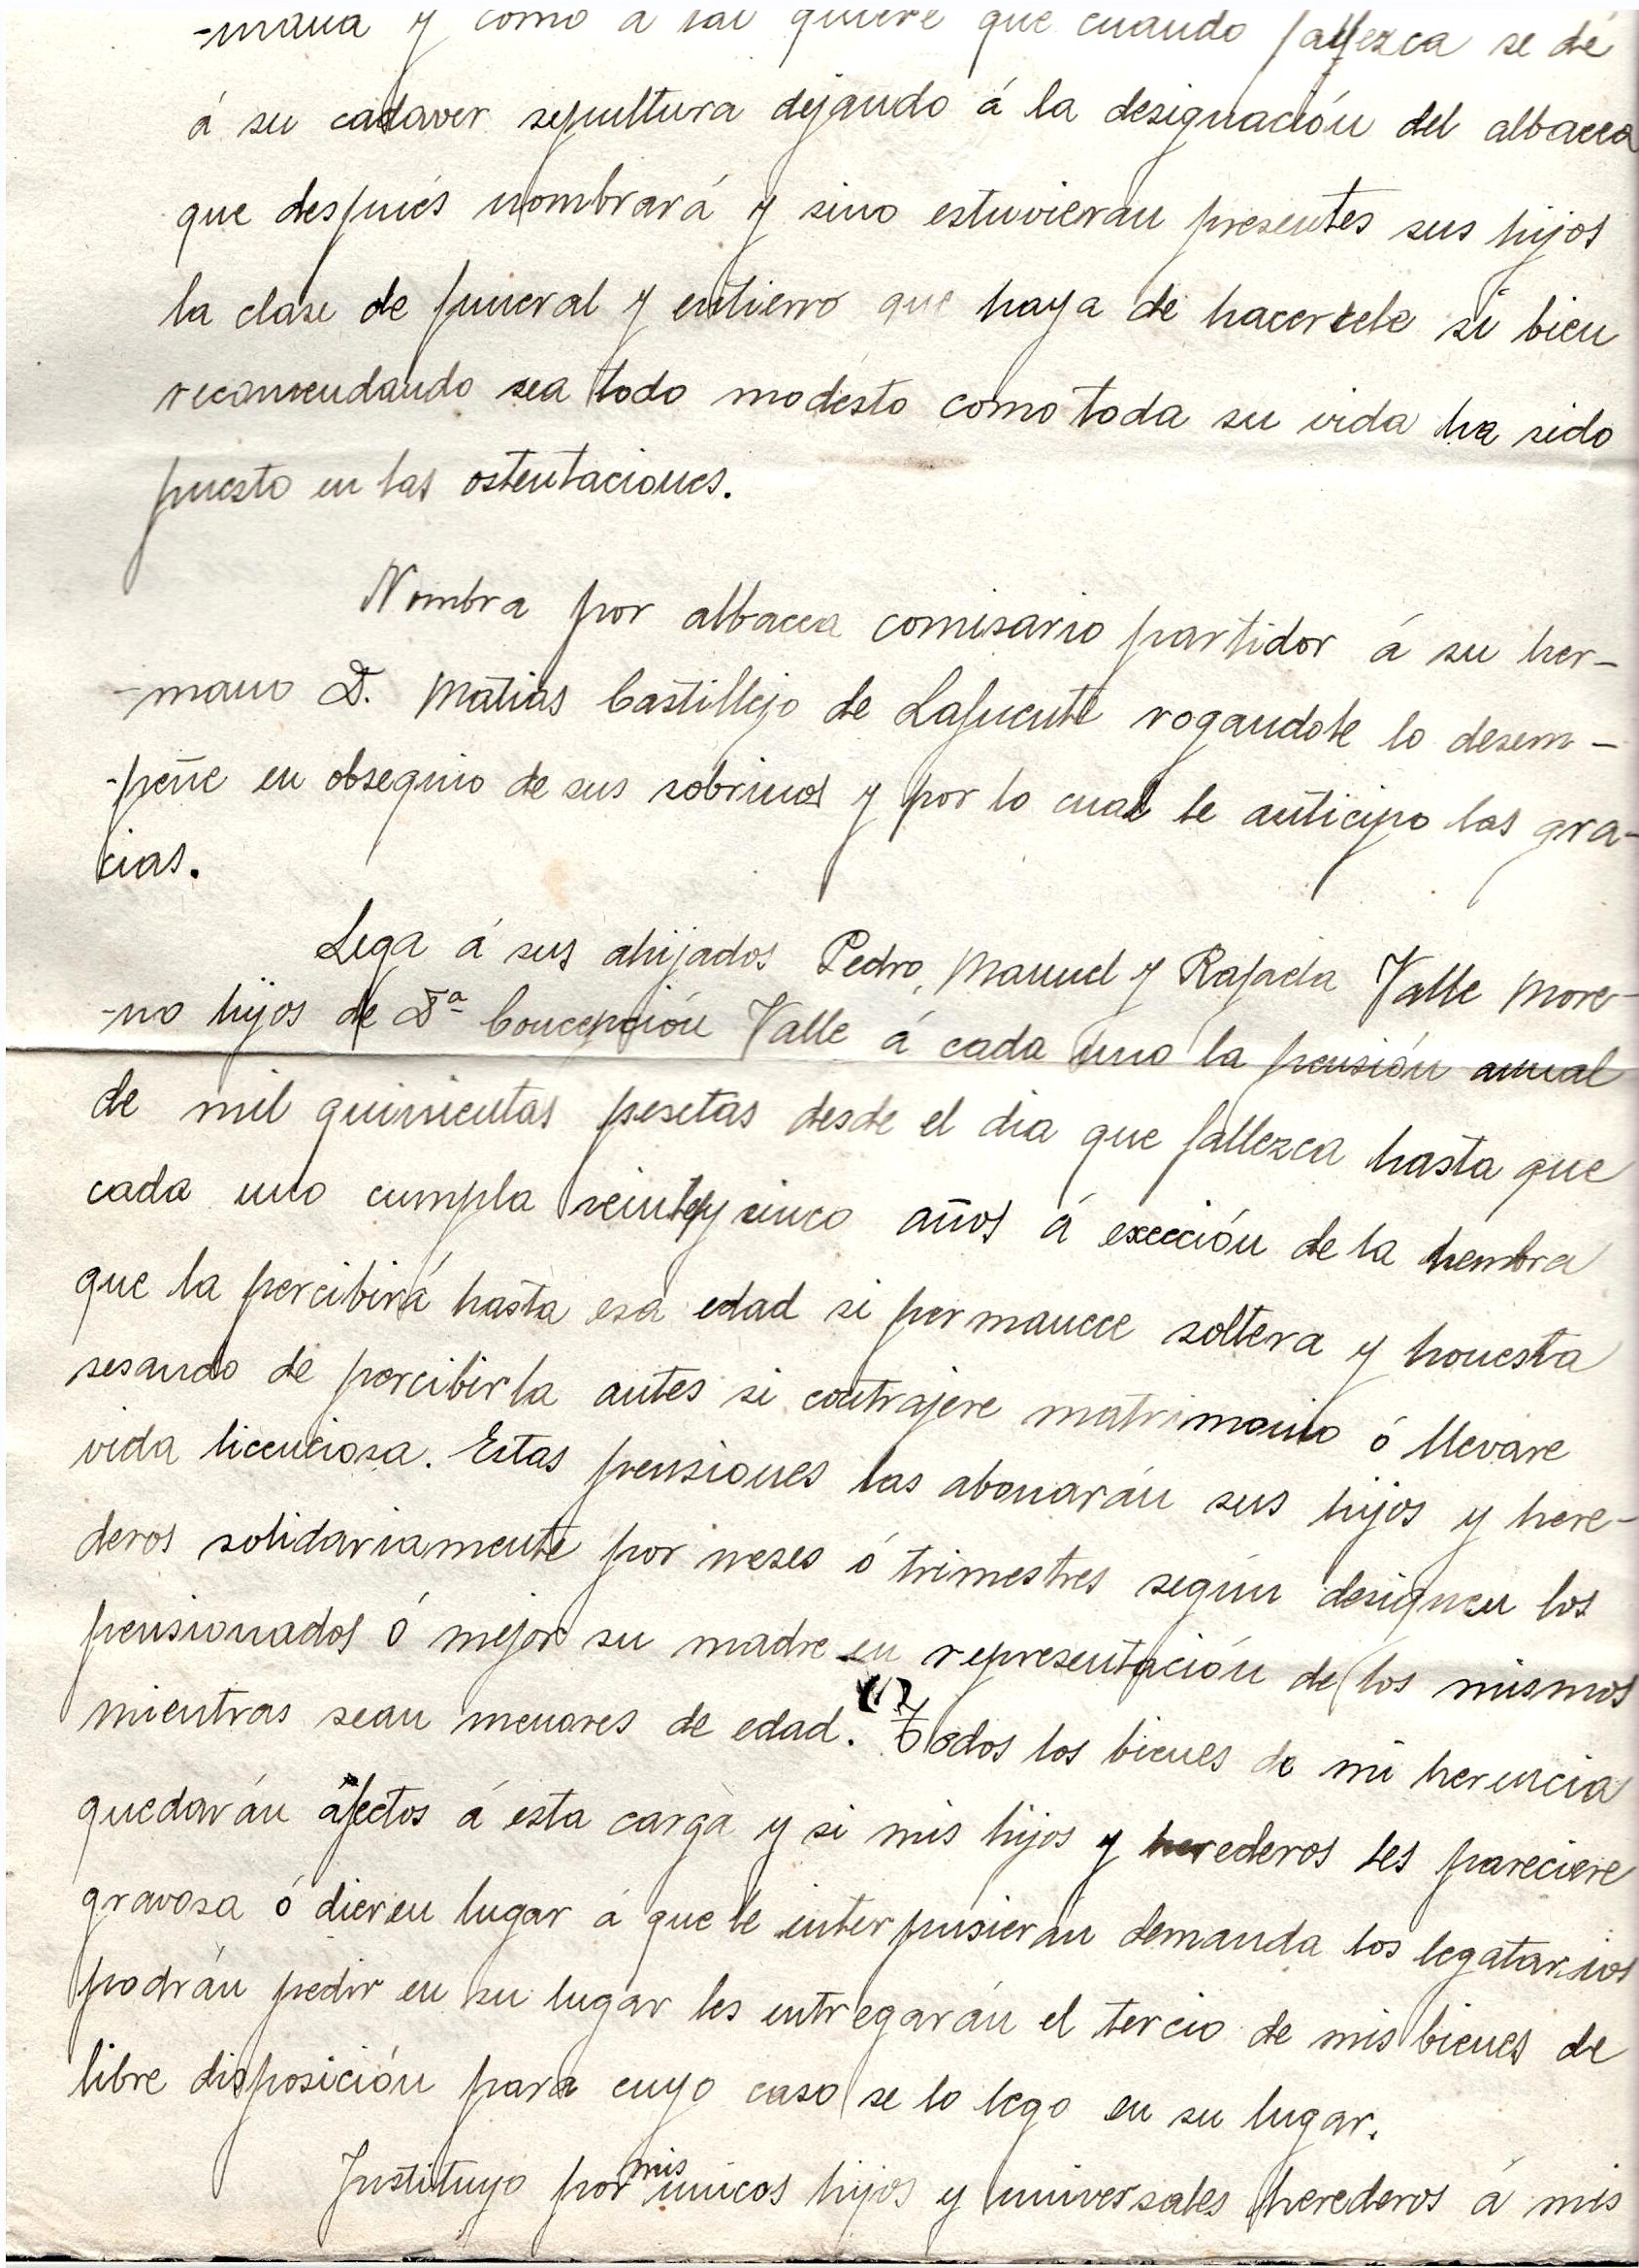 -mana y como a tal quiere que cuando fallezca se dé
á su cadaver sepultura dejando á la designación del albacea
que después nombrará y sino estuvieran presentes sus hijos
la clase de funeral y entierro que haya de hacersele si bien
recomendando sea todo modesto como toda su vida ha sido
puesto en las ostentaciones.
Nombra por albacea comisario partidor á su her-
-mano D. Matias Castillejo de Lafuente rogandole lo desem-
-peñe en obsequio de sus sobrinos y por lo cual le anticipo las gra-
cias.
Lega á sus ahijados Pedro, Manuel y Rafaela Valle More-
-no hijos de Dª Concepción Valle á cada uno la pensión anual
de mil quinientas pesetas desde el dia que fallezca hasta que
cada uno cumpla veintey cinco años á exección de la hembra
que la percibirá hasta esa edad si permanece soltera y honesta
sesando de percibirla antes si contrajere matrimonio ó llevare
vida licenciosa. Estas pensiones las abonarán sus hijos y here-
deros solidariamente por meses ó trimestres según designen los
pensionados ó mejor su madre en representación de los mismos
mientras sean menores de edad. (17 Todos los bienes de mi herencia
quedarán afectos á esta carga y si mis hijos y herederos les pareciere
gravosa ó dieren lugar á que le interpusieran demanda los legatarios
podrán pedir en su lugar les entregarán el tercio de mis bienes de
libre disposición para cuyo caso se lo lego en su lugar.
Instituyo por mis unicos hijos y universales herederos á mis